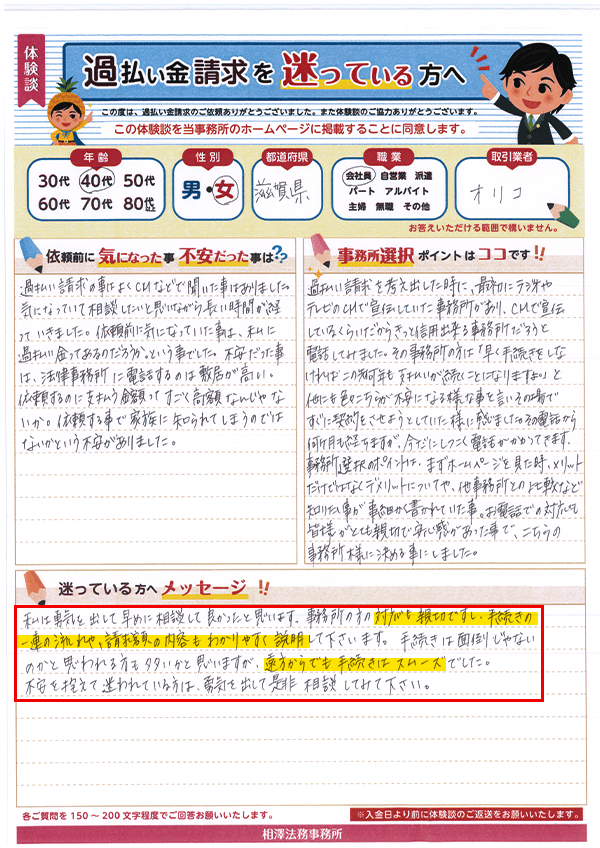 体験談
過払い金請求を 迷っている 方へ
この度は、過払い金請求のご依頼ありがとうございました。また体験談のご協力ありがとうございます。
この体験談を当事務所のホームページに掲載することに同意します。
年齢
30代 40代 50代
60代 70代 80歳以上
性別
男・女
都道府県
滋賀県
職業
会社員 自営業 派遣
パート アルバイト
主婦 無職 その他
取引業者
オリコ
お答えいただける範囲で構いません。
依頼前に 気になった事 不安だった事は??
過払い請求の事はよくCMなどで聞いた事はありました。
気になっていて相談したいと思いながら長い時間が経
っていきました。依頼前に気になっていた事は、私に
過払い金ってあるのだろうか。という事でした。不安だった事
は、法律事務所に電話するのは敷居が高い。
依頼するのに支払う金額ってすごく高額なんじゃな
いか。依頼する事で家族に知られてしまうのでは
ないかという不安がありました。
事務所選択 ポイントは ココです!!
過払い請求を考え出した時に、最初にラジオや
テレビのCMで宣伝していた事務所があり、CMで宣伝
しているくらいだからきっと信用出来る事務所だろうと
電話してみました。その事務所の方は「早く手続きをしな
ければこの先何年も支払いが続くことになりますよ。」と
他にも色々こちらが不安になる様な事を言いその場で
すぐに契約をさせようとしていた様に感じました。その電話から
何ヶ月も経ちますが、今だにしつこく電話がかかってきます。
事務所選択のポイントは、まずホームページを見た時、メリット
だけではなくデメリットについてや、他事務所との比較など
知りたい事が事細かく書かれていた事。お電話での対応も
皆様がとても親切で安心感があった事で、こちらの
事務所様に決める事にしました。
迷っている方へ メッセージ!!
私は勇気を出して早めに相談して良かったと思います。事務所の方の対応も親切ですし、手続きの
一連の流れや、請求額の内容もわかりやすく説明して下さいます。手続きは面倒じゃない
のかと思われる方も多いかと思いますが、遠方からでも手続きはスムーズでした。
不安を抱えて迷われている方は、勇気を出して是非相談してみて下さい。
各ご質問を150〜200文字程度でご回答お願いいたします。
※入金日より前に体験談のご返送をお願いいたします。
相澤法務事務所